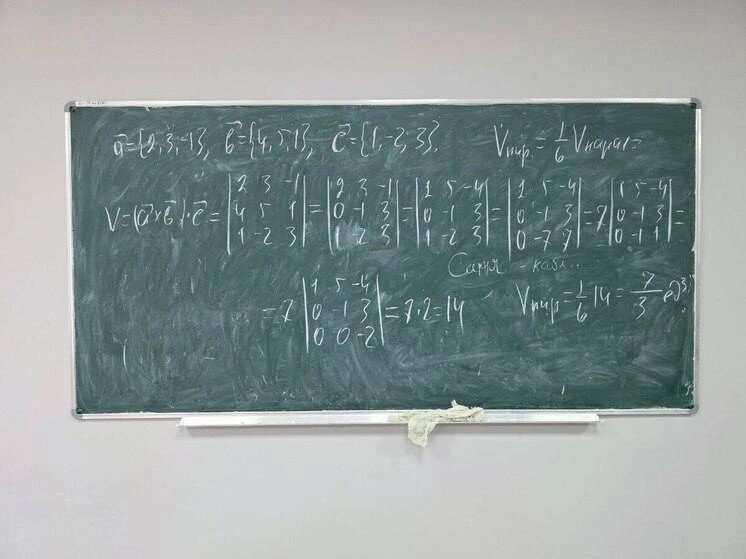 a⃗={2,3,-1}, b⃗={4,5,1}, c⃗={1,-2,3}. Vпир.=1/6 Vпарал=
V=(a⃗×b⃗)·c⃗= |2 3 -1; 4 5 1; 1 -2 3| = |2 3 -1; 0 -1 3; 1 -2 3| = |1 5 -4; 0 -1 3; 1 -2 3| = |1 5 -4; 0 -1 3; 0 -7 7| = 7 |1 5 -4; 0 -1 3; 0 -1 1| =
=7 |1 5 -4; 0 -1 3; 0 0 -2| =7·2=14 Vпир=1/6 14= 7/3 ед³